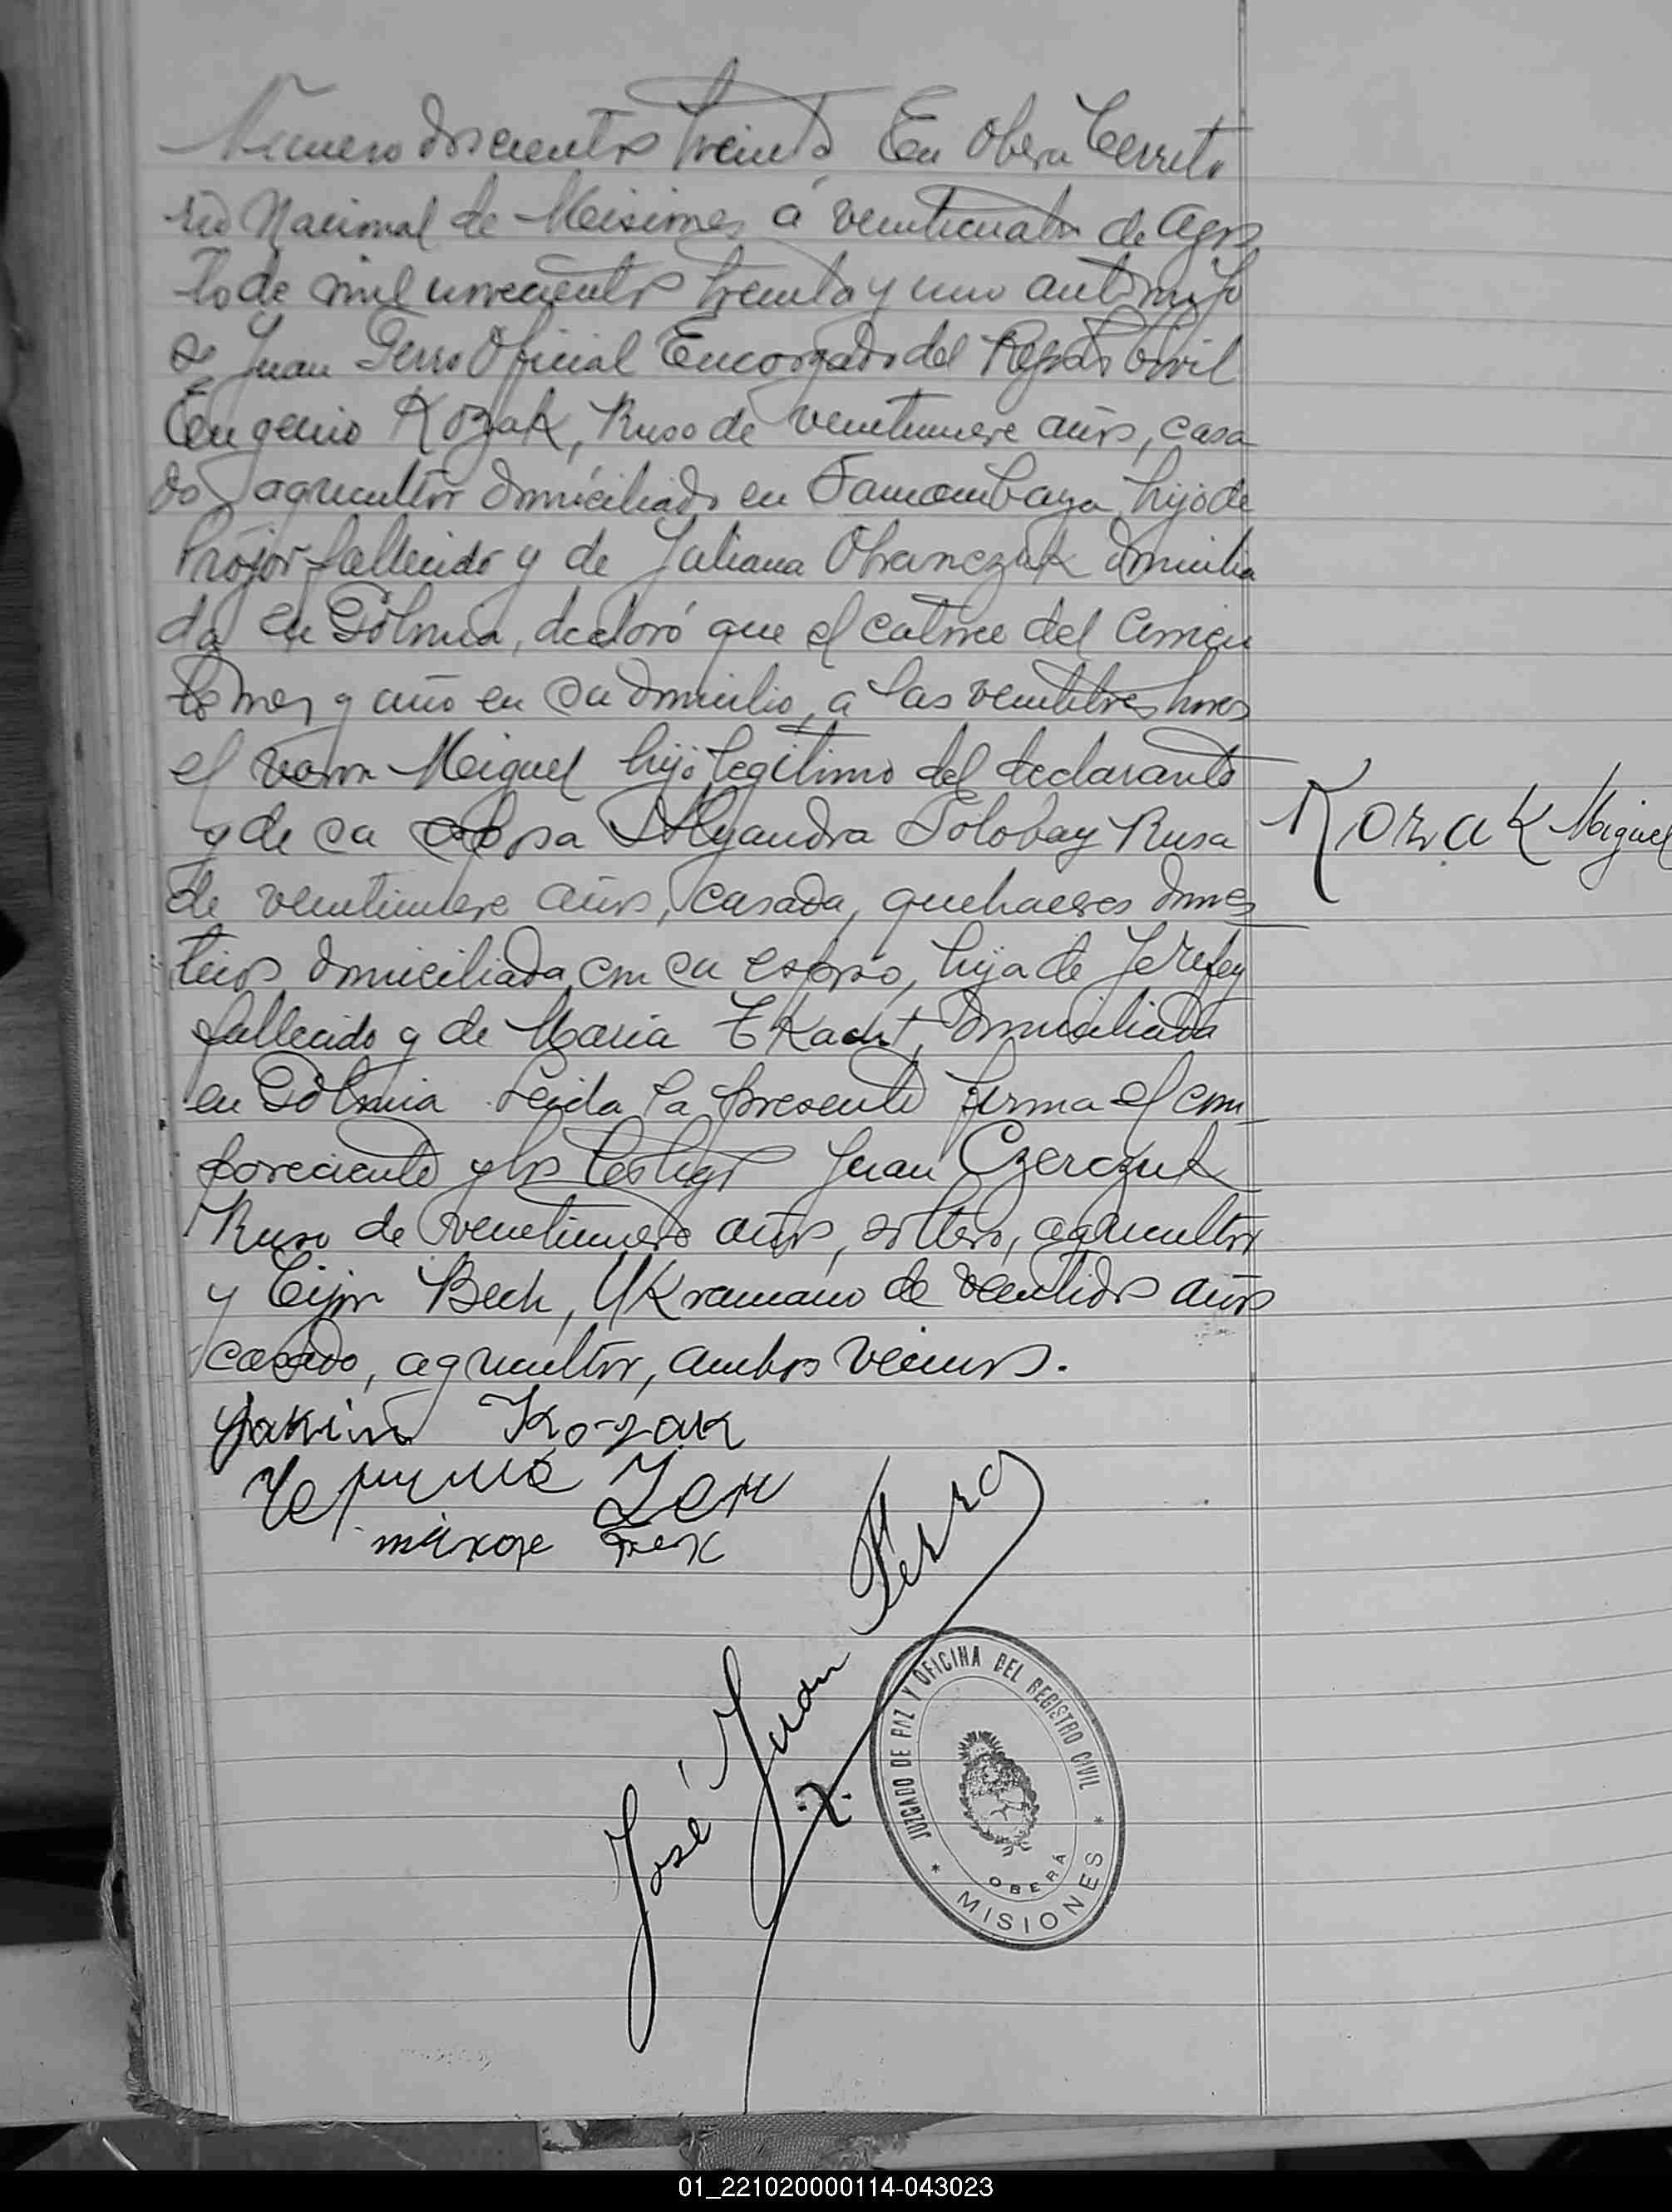 Numero doscientos treinta En Obera Territo
rio Nacional de Misiones a veinticuatro de Agos
to de mil novecientos treinta y uno ante mi Jo
sé Juan Ferro Oficial Encargado del Registro Civil
Eugenio Kozak, Ruso de veintinueve años, casa
do, agricultor domiciliado en Samambaya, hijo de
Projor fallecido y de Juliana Ohranczuk domicilia
da en Polonia, declaró que el catorce del corrien
te mes y año en su domicilio, a las veintitres horas
el varon Miguel hijo legítimo del declarante
y de su esposa Alejandra Solobay Rusa
de veintinueve años, casada, quehaceres domes
ticos domiciliada con su esposo, hija de Jerefey
fallecido y de Maria Tkacz, domiciliada
en Polonia Leida la presente firma el com
pareciente y los testigos Juan Czerczuk
Ruso de veintinueve años, soltero, agricultor
y Bech, Ukraniano de veintidos años
casado, agricultor, ambos vecinos.
Kozak Miguel
Kozak
José Juan Ferro
JUZGADO DE PAZ Y OFICINA DEL REGISTRO CIVIL
* MISIONES *
OBERÁ
01_221020000114-043023